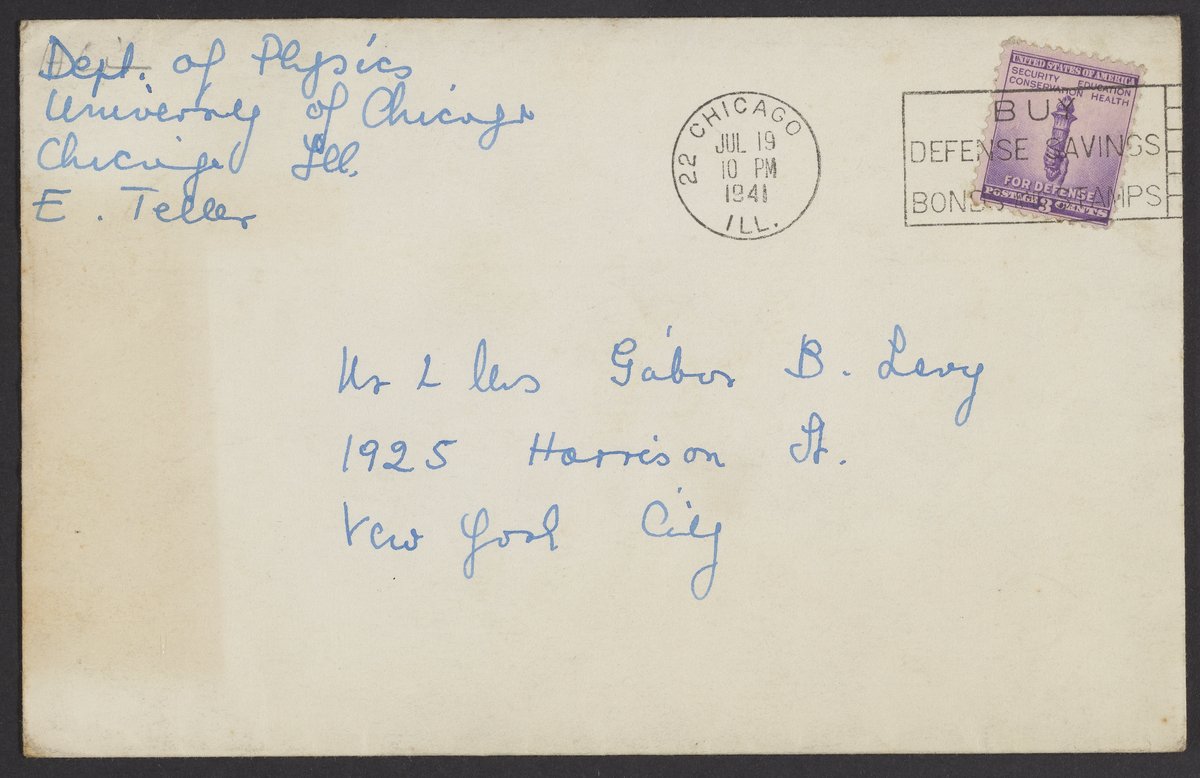 Dept. of Physics
University of Chicago
Chicago Ill.
E. Teller
22 CHICAGO
JUL 19
10 PM
1941
ILL.
BUY
DEFENSE SAVINGS
BONDS STAMPS
UNITED STATES OF AMERICA
SECURITY EDUCATION
CONSERVATION HEALTH
FOR DEFENSE
POSTAGE 3 CENTS
Mr & Mrs Gábor B. Levy
1925 Harrison St.
New York City